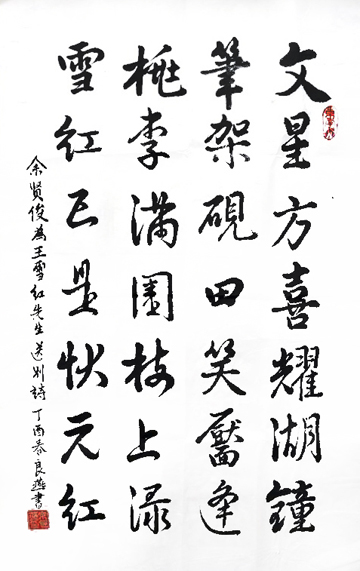 文星方喜耀湖鐘
筆架硯田笑靨逢
桃李滿園枝上渌
雪红已是状元红
余賢俊為王雪红先生送别詩 丁酉春良燕書